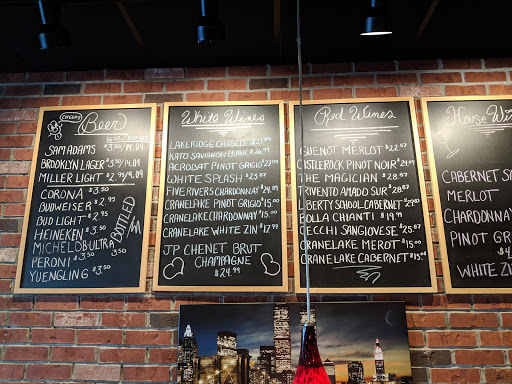 CHEERS
Beer
16 oz / PITCHER
SAM ADAMS $3.50/14.09
BROOKLYN LAGER $3.50/14.09
MILLER LIGHT $2.95/9.09
CORONA $3.50
BUDWEISER $2.95
BUD LIGHT $2.95
HEINEKEN $3.50
MICHELOB ULTRA
PERONI $3.50
YUENGLING $3.50
BOTTLED
White Wines
LAKERIDGE CHABLIS
KATO SAVIGNON BLANC $26.99
ACROBAT PINOT GRIGIO $22.99
WHITE SPLASH $23.87
FIVE RIVERS CHARDONNAY $24.89
CRANELAKE PINOT GRIGIO $15.00
CRANELAKE CHARDONNAY $15.00
CRANELAKE WHITE ZIN $17.99
JP CHENET BRUT
CHAMPAGNE
$24.99
Red Wines
GUENOT MERLOT $22.87
CASTLEROCK PINOT NOIR $24.99
THE MAGICIAN $28.87
TRIVENTO AMADO SUR $28.87
LIBERTY SCHOOL CABERNET $29.87
BOLLA CHIANTI $19.99
CECCHI SANGIOVESE $25.87
CRANELAKE MEROT $15.00
CRANELAKE CABERNET $15.00
House Wi
CABERNET S
MERLOT
CHARDONNAY
PINOT GRI
WHITE ZIN